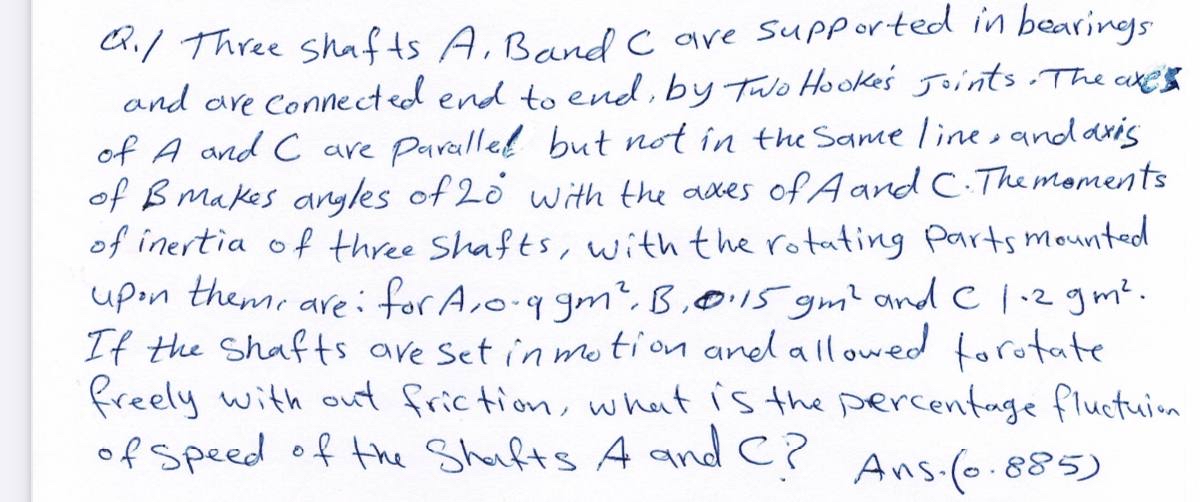 Q.1 Three shafts A, B and C are supported in bearings
and are connected end to end, by Two Hooke's Joints. The axes
of A and C are parallel but not in the same line, and axis
of B makes angles of 20° with the axes of A and C. The moments
of inertia of three shafts, with the rotating parts mounted
upon them, are: for A, 0.9 gm², B, 0.15 gm² and C 1.2 gm².
If the shafts are set in motion and allowed to rotate
freely with out friction, what is the percentage fluctuion
of speed of the Shafts A and C? Ans. (0.885)